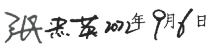 张忠英2022年9月6日